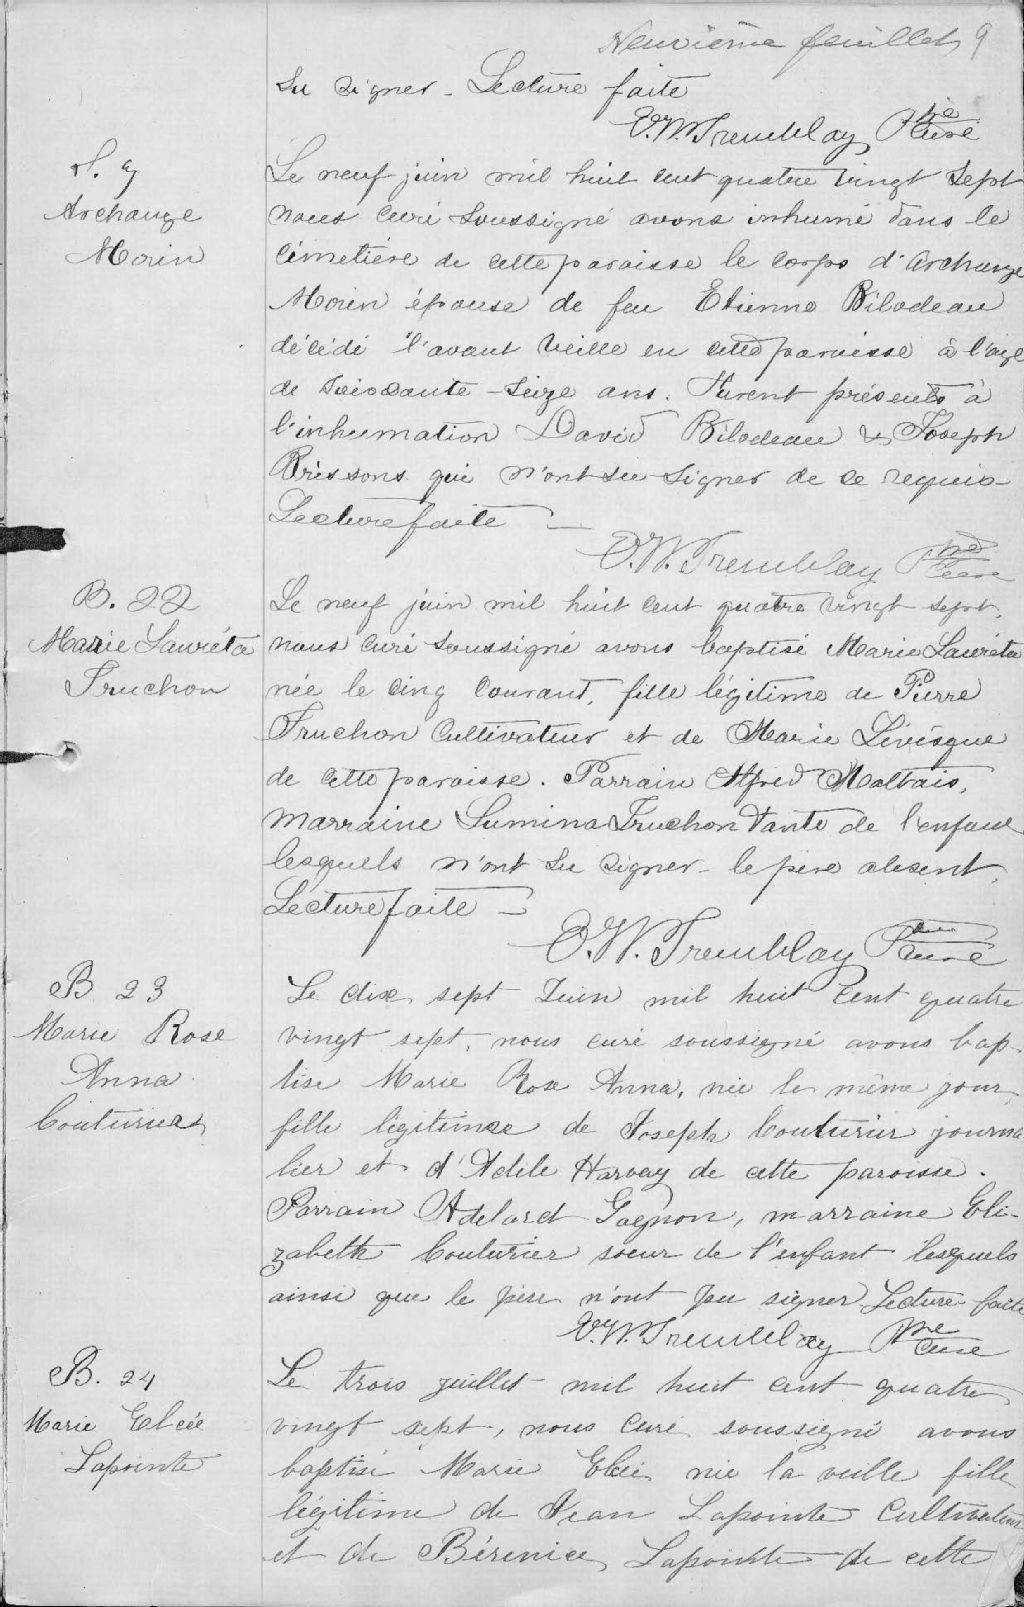 Neuvième feuillet 9
su signer - Lecture faite
O.W. Tremblay Ptre Curé
S. 9
Archange
Morin
Le neuf juin mil huit cent quatre vingt sept
nous curé soussigné avons inhumé dans le
cimetière de cette paroisse le corps d'Archange
Morin épouse de feu Etienne Bilodeau
décédé l'avant veille en cette paroisse à l'age
de soixante-seize ans. Furent présents à
l'inhumation David Bilodeau & Joseph
Brissons qui n'ont su signer de ce requis -
Lecture faite -
O.W. Tremblay Ptre Curé
B. 22
Marie Lauréta
Truchon
Le neuf juin mil huit cent quatre vingt sept,
nous curé soussigné avons baptisé Marie Lauréta
née le cinq courant, fille légitime de Pierre
Truchon Cultivateur et de Marie Lévésque
de cette paroisse. Parrain Alfred Maltais,
marraine Lumina Truchon tante de l'enfant
lesquels n'ont su signer - le père absent,
Lecture faite -
O.W. Tremblay Ptre Curé
B 23
Marie Rose
Anna
Couturier
Le dix sept Juin mil huit cent quatre
vingt sept, nous curé soussigné avons bap-
tisé Marie Rose Anna, née le même jour,
fille légitime de Joseph Couturier journa
lier et d'Adèle Harvay de cette paroisse.
Parrain Adelard Gagnon, marraine Eli-
zabeth Couturier soeur de l'enfant lesquels
ainsi que le père n'ont pu signer Lecture faite
O.W. Tremblay Ptre Curé
B. 24
Marie
Lapointe
Le trois juillet mil huit cent quatre
vingt sept, nous curé soussigné avons
baptisé Marie née la veille fille
légitime de Jean Lapointe Cultivateur
et de Bérénice Lapointe de cette